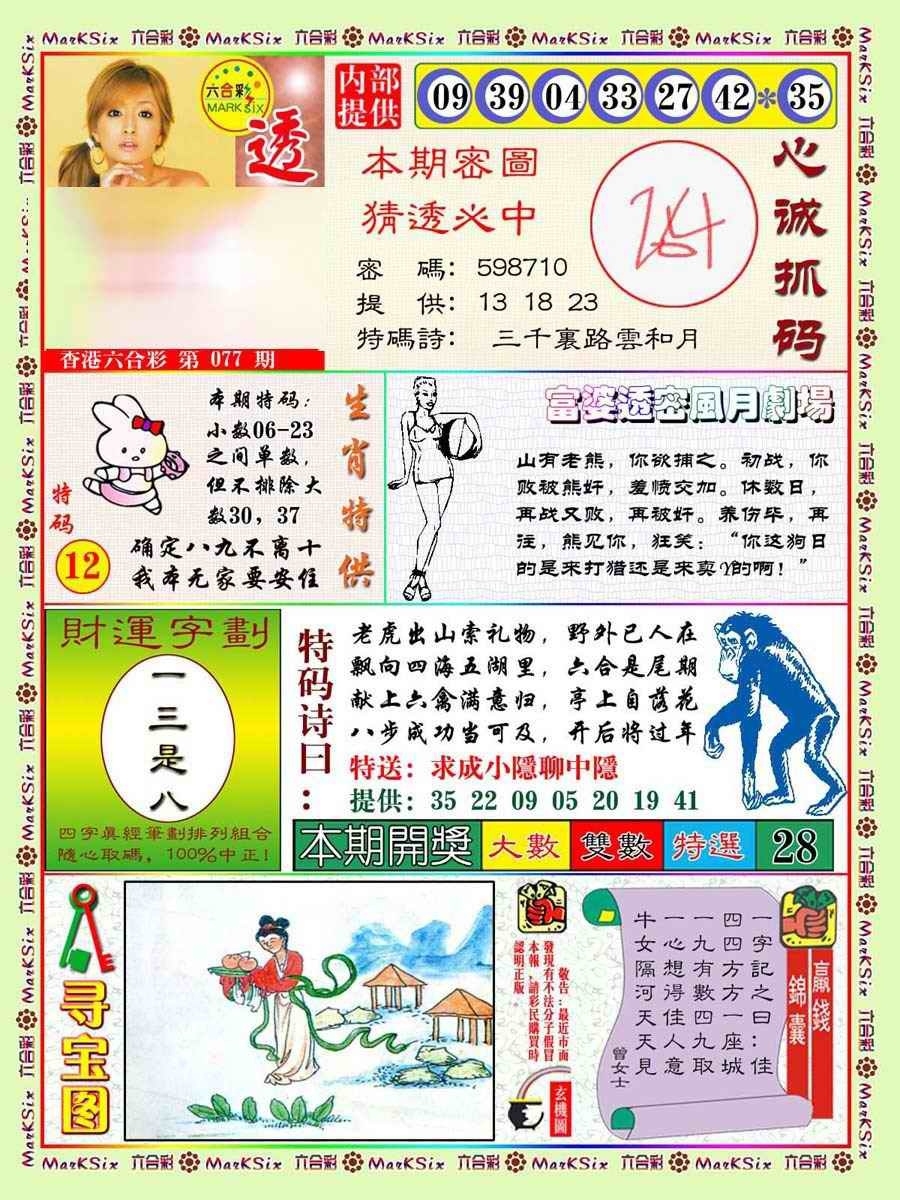 MarKSix 六合彩 MarKSix 六合彩 MarKSix 六合彩 MarKSix 六合彩 MarKSix 六合彩 MarKSix 六合彩
六合彩
MARK six
透
内部
提供
09 39 04 33 27 42 * 35
本期密圖
猜透必中
密 碼: 598710
提 供: 13 18 23
特碼詩: 三千裏路雲和月
心诚抓码
香港六合彩 第 077 期
本期特码:
小数06-23
之间单数,
但不排除大
数30, 37
特码
12
确定八九不离十
我本无家要安住
生肖特供
富婆透密風月劇場
山有老熊,你欲捕之。初战,你
败被熊奸,羞愤交加。休数日,
再战又败,再被奸。养伤毕,再
往,熊见你,狂笑:“你这狗日
的是来打猎还是来卖Y的啊!”
財運字劃
一
三
是
八
四字真經筆劃排列組合
隨心取碼, 100%中正!
特码诗曰:
老虎出山索礼物, 野外已人在
飘向四海五湖里, 六合是尾期
献上六禽满意归, 亭上自落花
八步成功当可及, 开后将过年
特送: 求成小隱聊中隱
提供: 35 22 09 05 20 19 41
本期開獎 大數 雙數 特選 28
寻宝图
敬告:最近市面
發現有不法分子假冒
本報,請彩民購買時
認明正版。
玄機圖
一字記之曰:佳
四四方方一座城
一九有數四九取
一心想得佳人意
牛女隔河天天見
曾女士
贏錢
錦囊
MarKSix 六合彩 MarKSix 六合彩 MarKSix 六合彩 MarKSix 六合彩 MarKSix 六合彩 MarKSix 六合彩